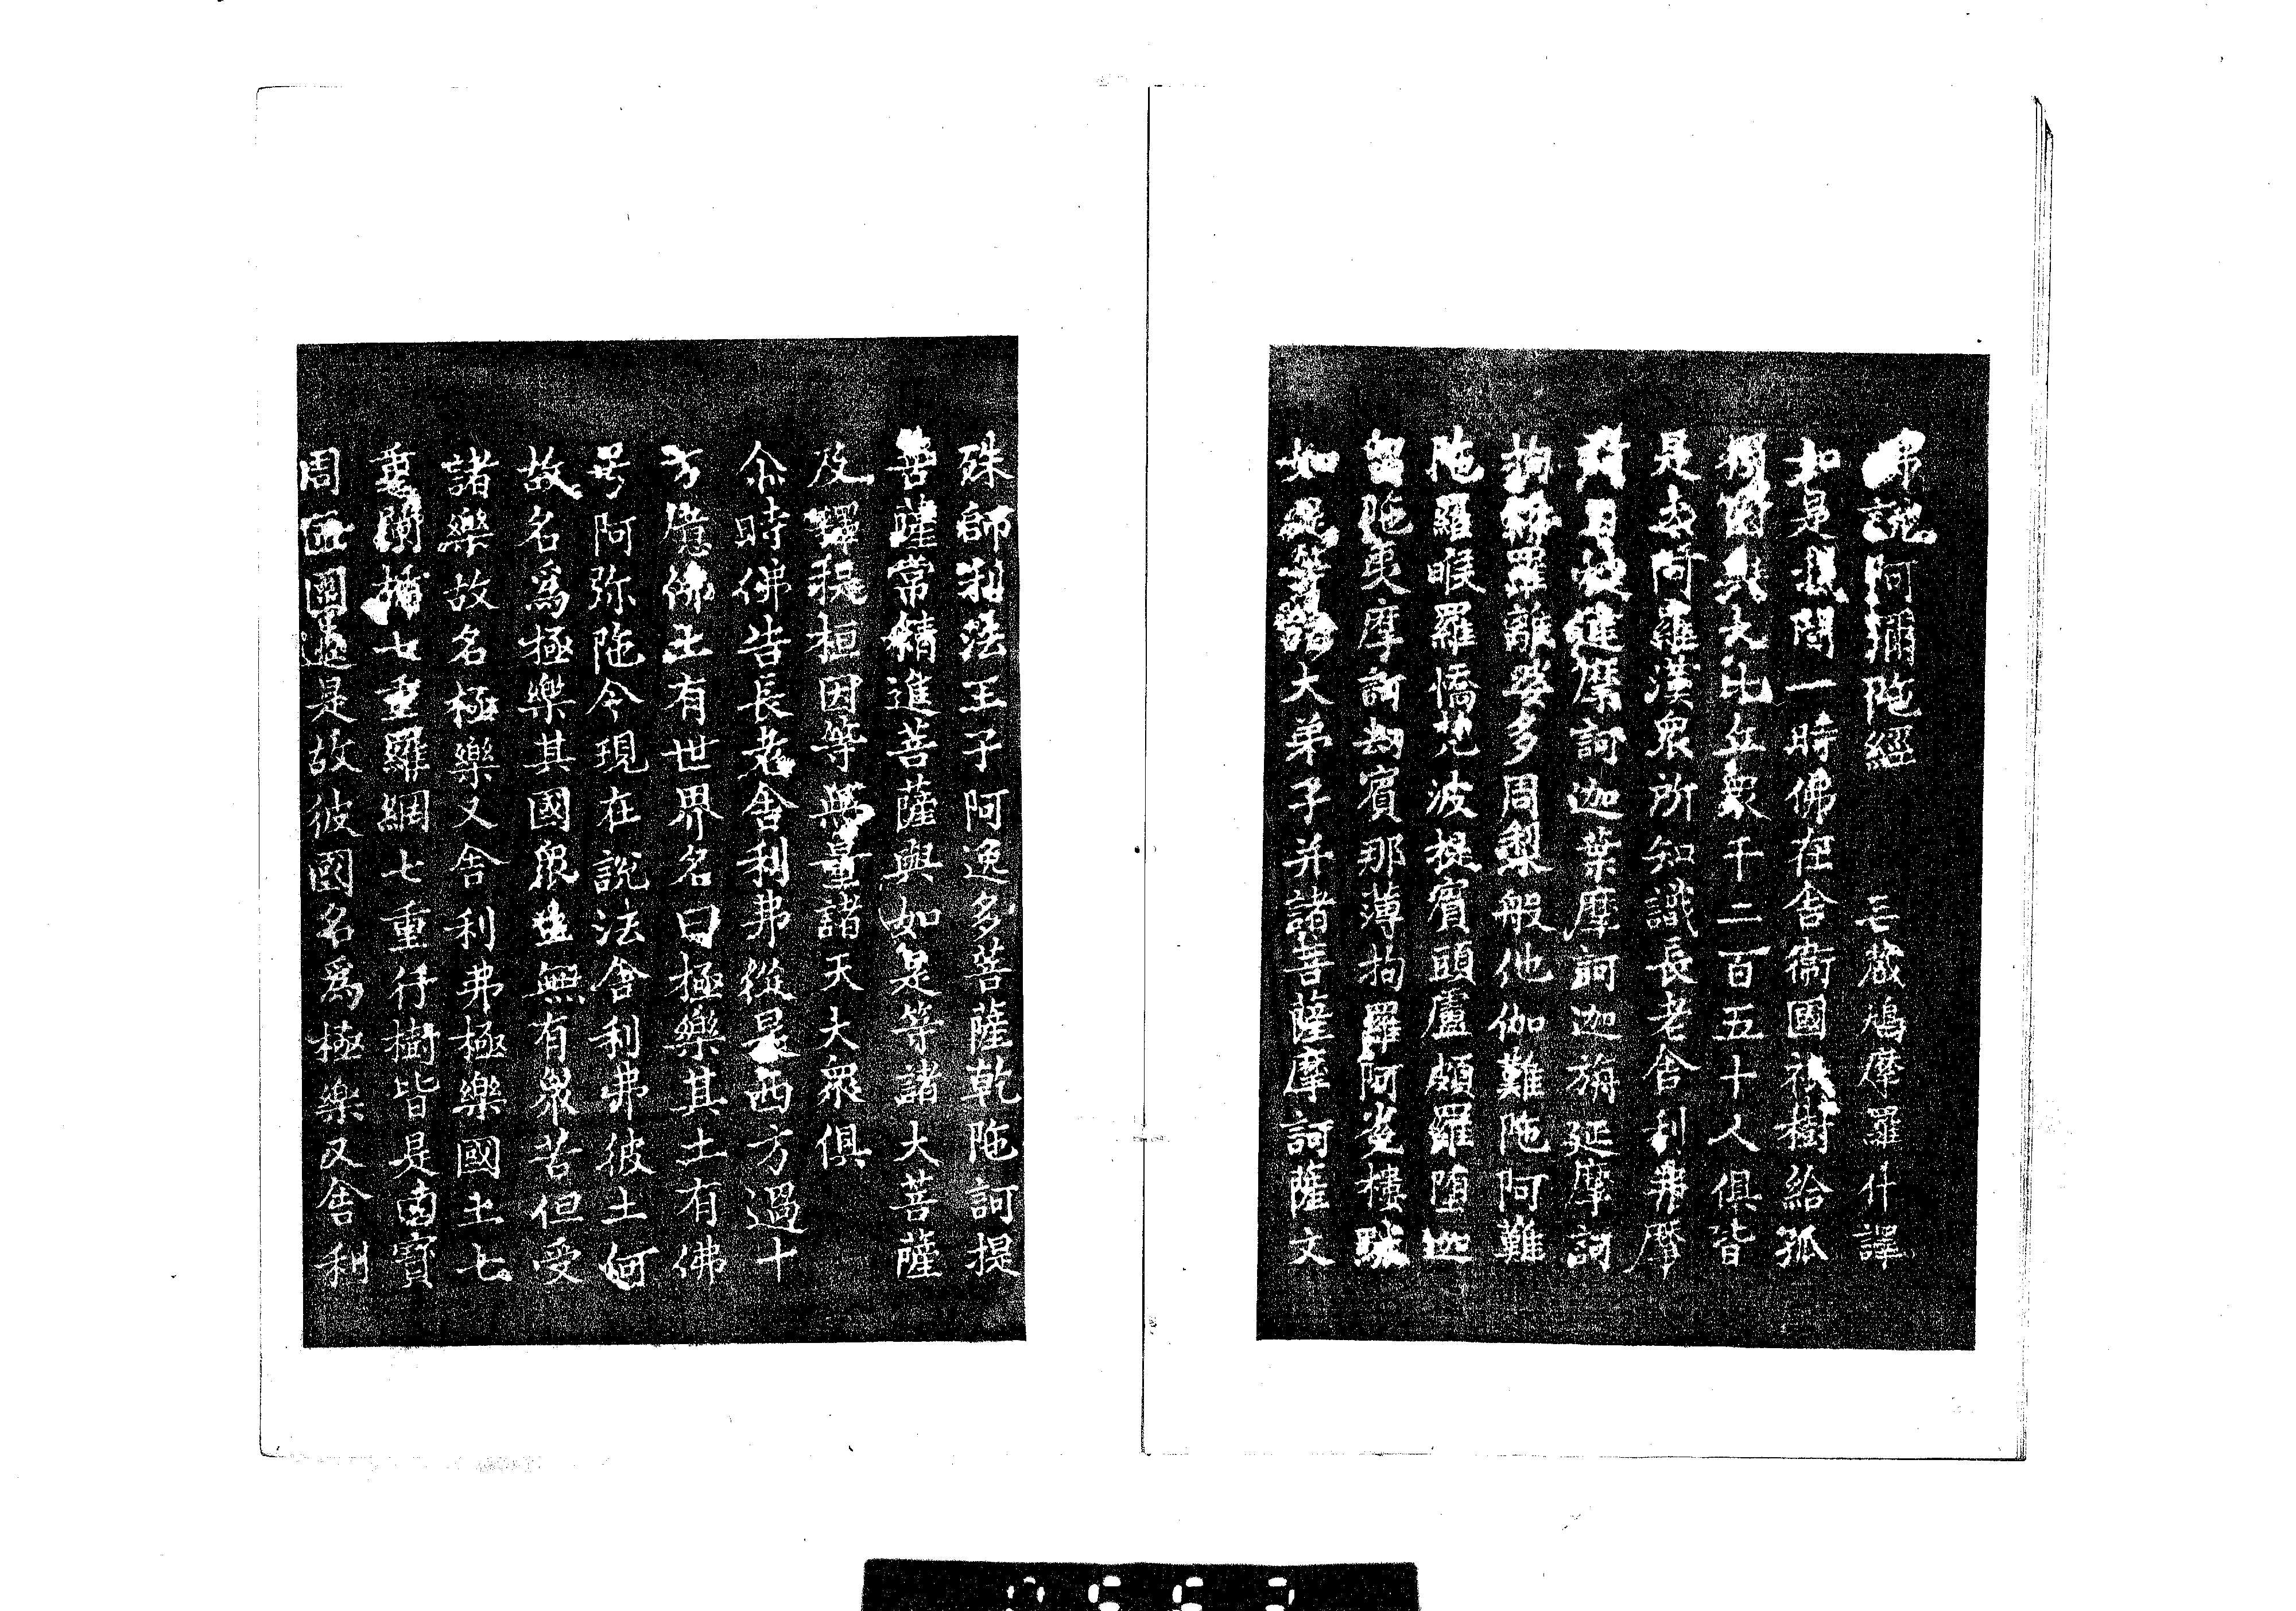 佛說阿彌陁經 三藏鳩摩羅什譯
如是我聞一時佛在舍衞國祇樹給孤
獨園與大比丘衆千二百五十人俱皆
是大阿羅漢衆所知識長老舍利弗摩
訶目乾連摩訶迦葉摩訶迦旃延摩訶
拘絺羅離婆多周梨般他伽難陁阿難
陁羅睺羅憍梵波提賓頭盧頗羅堕迦
留陁夷摩訶劫賓那薄拘羅阿㝹樓馱
如是等諸大弟子并諸菩薩摩訶薩文
殊師利法王子阿逸多菩薩乾陁訶提
菩薩常精進菩薩與如是等諸大菩薩
及釋提桓因等無量諸天大衆俱
尒時佛告長老舍利弗從是西方過十
万億佛土有世界名曰極樂其土有佛
号阿弥陁今現在說法舍利弗彼土何
故名爲極樂其國衆生無有衆苦但受
諸樂故名極樂又舍利弗極樂國土七
重欄楯七重羅網七重行樹皆是四寶
周匝圍遶是故彼國名爲極樂又舍利